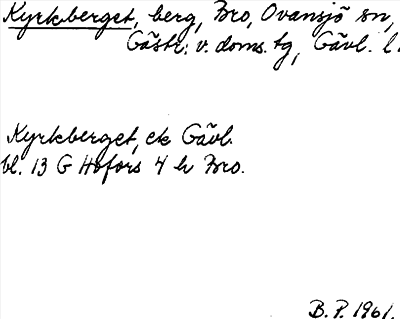 Kyrkberget, berg, Bro, Ovansjö sn,
Gästr: v. doms. tg, Gävl. l.
Kyrkberget, ek Gävl.
bl. 13 G Hofors 4 h Bro.
B. P. 1961.